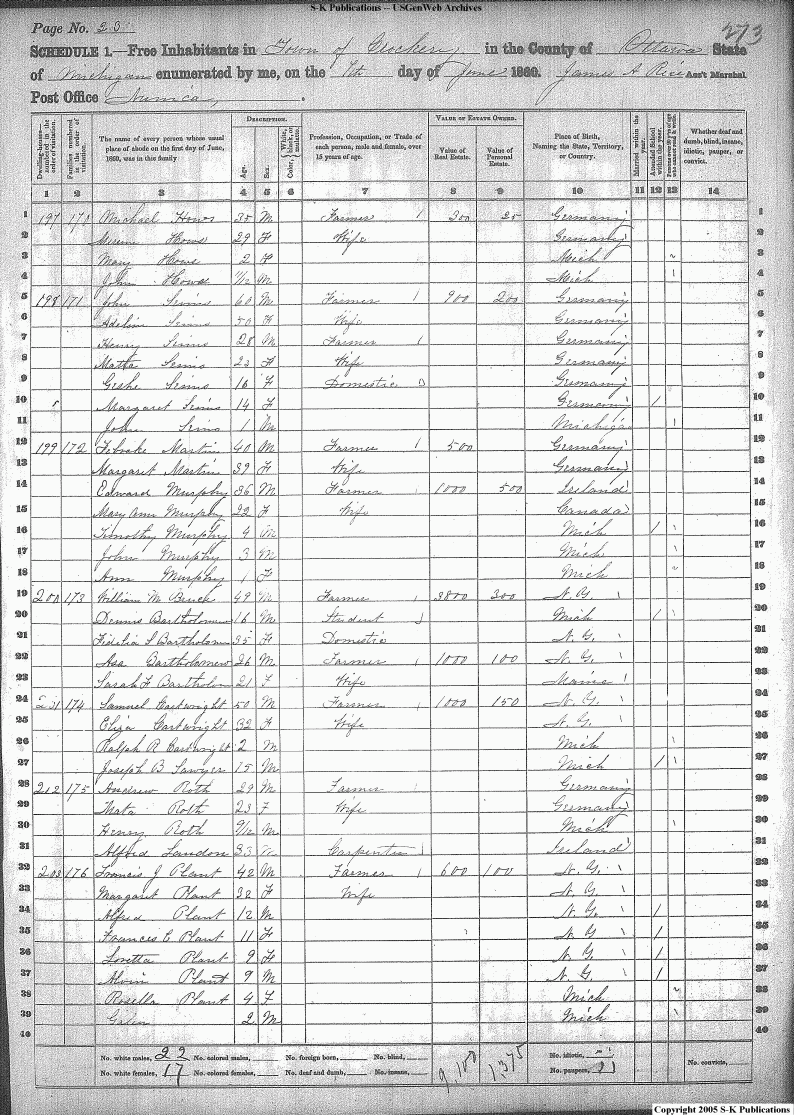 S-K Publications -- USGenWeb Archives
Page No. 23
273
SCHEDULE 1.—Free Inhabitants in Town of Crockery in the County of Ottawa State
of Michigan enumerated by me, on the 7th day of June 1860. James A Rice Ass't Marshal
Post Office Nunica
Dwelling-houses—numbered in the order of visitation.
Families numbered in the order of visitation.
The name of every person whose usual place of abode on the first day of June, 1860, was in this family
DESCRIPTION.
Age.
Sex.
Color, White, black, or mulatto.
Profession, Occupation, or Trade of each person, male and female, over 15 years of age.
VALUE OF ESTATE OWNED.
Value of Real Estate.
Value of Personal Estate.
Place of Birth, Naming the State, Territory, or Country.
Married within the year.
Attended School within the year.
Persons over 20 y'rs of age who cannot read & write.
Whether deaf and dumb, blind, insane, idiotic, pauper, or convict.
1 2 3 4 5 6 7 8 9 10 11 12 13 14
1 197 Michael Hows 35 M Farmer 1 300 25 Germany 1
2 Hows 29 F Wife Germany 2
3 Mary Hows 2 F Mich 3
4 John Hows M Mich 4
5 198 171 John Seims 60 M Farmer 1 900 200 Germany 5
6 Adeline Seims 50 F Wife Germany 6
7 Henry Seims 28 M Farmer 1 Germany 7
8 Matta Seims 23 F Wife Germany 8
9 Geshe Seims 16 F Domestic Germany 9
10 Margaret Seims 14 F Germany 1 10
11 John Seims 1 M Michigan 11
12 199 172 Martin 40 M Farmer 1 500 Germany 12
13 Margaret Martin 39 F Wife Germany 13
14 Edward Murphy 36 M Farmer 1 1000 500 Ireland 14
15 Mary Ann Murphy 22 F Wife Canada 15
16 Timothy Murphy 4 M Mich 1 16
17 John Murphy 3 M Mich 17
18 Ann Murphy 1 F Mich 18
19 200 173 William M 49 M Farmer 1 3800 300 N.Y. 19
20 Dennis Bartholomew 16 M Student Mich 1 20
21 Fidelia S Bartholomew 35 F Domestic N.Y. 21
22 Asa Bartholomew 26 M Farmer 1000 100 N.Y. 22
23 Sarah F Bartholom 21 F Wife Maine 23
24 201 174 Samuel Cartwright 50 M Farmer 1 1000 150 N.Y. 24
25 Eliza Cartwright 32 F Wife N.Y. 25
26 Ralph R Cartwright 2 M Mich 26
27 Joseph B Sawyer 15 M Mich 1 27
28 202 175 Andrew Roth 29 M Farmer Germany 28
29 Mata Roth 23 F Wife Germany 29
30 Henry Roth 9/12 M Mich 30
31 Alfred Landon 33 M Carpenter Ireland 31
32 203 176 Francis J Plant 42 M Farmer 1 600 100 N.Y. 32
33 Margaret Plant 32 F Wife N.Y. 33
34 Alfred Plant 12 M N.Y. 1 34
35 Frances E Plant 11 F N.Y. 1 35
36 Loretta Plant 9 F N.Y. 1 36
37 Alvin Plant 9 M N.Y. 1 37
38 Rosella Plant 4 F Mich 38
39 2 M Mich 39
40 40
No. white males, 22 No. colored males, No. foreign born, No. blind, 9,100 1,375 No. idiotic, No. convicts,
No. white females, 17 No. colored females, No. deaf and dumb, No. insane, No. paupers,
Copyright 2005 S-K Publications